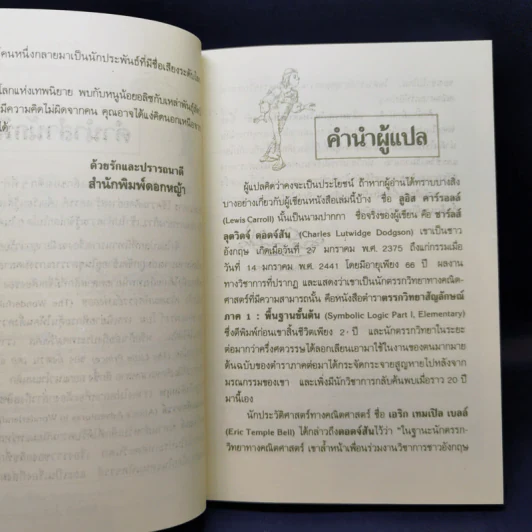 คนหนึ่งกลายมาเป็นนักประพันธ์ที่มีชื่อเสียงระดับโลก
โลกแห่งเทพนิยาย พบกับหนูน้อยอลิซกับเหล่าพันธุ์สัตว์
มีความคิดไม่ผิดจากคน คุณอาจได้แง่คิดนอกเหนือจาก
ได้
ด้วยรักและปรารถนาดี
สำนักพิมพ์ดอกหญ้า
คำนำผู้แปล
ผู้แปลคิดว่าคงจะเป็นประโยชน์ ถ้าหากผู้อ่านได้ทราบบางสิ่ง
บางอย่างเกี่ยวกับผู้เขียนหนังสือเล่มนี้บ้าง ชื่อ ลูอิส คาร์รอลล์
(Lewis Carroll) นั้นเป็นนามปากกา ชื่อจริงของผู้เขียน คือ ชาร์ลส์
ลุตวิดจ์ ดอดจ์สัน (Charles Lutwidge Dodgson) เขาเป็นชาว
อังกฤษ เกิดเมื่อวันที่ 27 มกราคม พ.ศ. 2375 ถึงแก่กรรมเมื่อ
วันที่ 14 มกราคม พ.ศ. 2441 โดยมีอายุเพียง 66 ปี ผลงาน
ทางวิชาการที่ปรากฏ และแสดงว่าเขาเป็นนักตรรกวิทยาทางคณิต-
ศาสตร์ที่มีความสามารถนั้น คือหนังสือตำราตรรกวิทยาสัญลักษณ์
ภาค 1 : พื้นฐานขั้นต้น (Symbolic Logic Part I, Elementary)
ซึ่งตีพิมพ์ก่อนเขาสิ้นชีวิตเพียง 2 ปี และนักตรรกวิทยาในระยะ
ต่อมากว่าครึ่งศตวรรษได้ลอกเลียนเอามาใช้ในงานของตนมากมาย
ต้นฉบับของตำราภาคต่อมาได้กระจัดกระจายสูญหายไปหลังจาก
มรณกรรมของเขา และเพิ่งมีนักวิชาการกลับค้นพบเมื่อราว 20 ปี
มานี้เอง
นักประวัติศาสตร์ทางคณิตศาสตร์ ชื่อ เอริก เทมเปิล เบลล์
(Eric Temple Bell) ได้กล่าวถึงดอดจ์สันไว้ว่า "ในฐานะนักตรรก-
วิทยาทางคณิตศาสตร์ เขาล้ำหน้าเพื่อนร่วมงานวิชาการชาวอังกฤษ